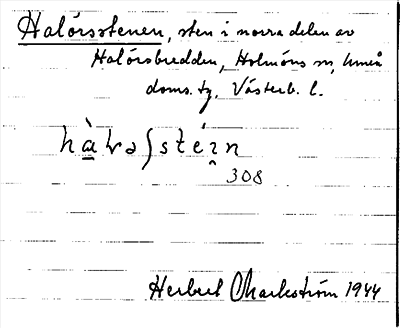 Halörsstenen, sten i norra delen av
Halörsbredden, Holmöns sn, Umeå
doms. tg. Västerb. l.
308
Herbert Markström 1944